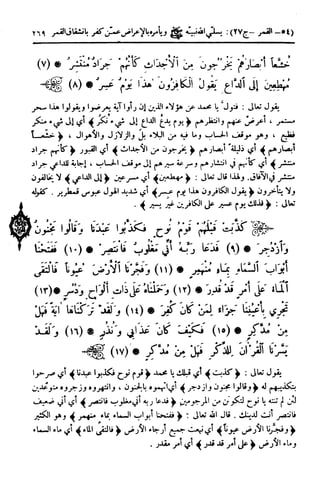 (٥٤ - القمر - ج٢٧): يسلي الله نبيه ﷺ ويأمره بالإعراض عمن كفر بانشقاق القمر ٢٦٩
خُشَّعًا أَبْصَارُهُمْ يَخْرُجُونَ مِنَ الْأَجْدَاثِ كَأَنَّهُمْ جَرَادٌ مُنْتَشِرٌ * (٧)
مُهْطِعِينَ إِلَى الدَّاعِ يَقُولُ الْكَافِرُونَ هَذَا يَوْمٌ عَسِرٌ * (٨)
يقول تعالى : فتول يا محمد عن هؤلاء الذين إن رأوا آية يعرضوا ويقولوا هذا سحر
مستمر ، أعرض عنهم وانتظرهم ﴿ يوم يدع الداع إلى شيء نكر ﴾ أي إلى شيء منكر
فظيع ، وهو موقف الحساب وما فيه من البلاء بل والزلازل والأهوال ، ﴿ خشعاً
أبصارهم ﴾ أي ذليلة أبصارهم ﴿ يخرجون من الأجداث ﴾ أي القبور ﴿ كأنهم جراد
منتشر ﴾ أي كأنهم في انتشارهم وسرعة سيرهم إلى موقف الحساب ، إجابة للداعي جراد
منتشر في الآفاق. ولهذا قال تعالى : ﴿ مهطعين ﴾ أي مسرعين ﴿ إلى الداعي ﴾ لا يخالفون
ولا يتأخرون ﴿ يقول الكافرون هذا يوم عسر ﴾ أي شديد الهول عبوس قمطرير . كقوله
تعالى : ﴿ فذلك يوم عسير على الكافرين غير يسير ﴾ .
كَذَّبَتْ قَبْلَهُمْ قَوْمُ نُوحٍ فَكَذَّبُوا عَبْدَنَا وَقَالُوا مَجْنُونٌ
وَازْدُجِرَ * (٩) فَدَعَا رَبَّهُ أَنِّي مَغْلُوبٌ فَانْتَصِرْ * (١٠) فَفَتَحْنَا
أَبْوَابَ السَّمَاءِ بِمَاءٍ مُنْهَمِرٍ * (١١) وَفَجَّرْنَا الْأَرْضَ عُيُونًا فَالْتَقَى
الْمَاءُ عَلَى أَمْرٍ قَدْ قُدِرَ * (١٢) وَحَمَلْنَاهُ عَلَى ذَاتِ أَلْوَاحٍ وَدُسُرٍ * (١٣)
تَجْرِي بِأَعْيُنِنَا جَزَاءً لِمَنْ كَانَ كُفِرَ * (١٤) وَلَقَدْ تَرَكْنَاهَا آيَةً فَهَلْ
مِنْ مُدَّكِرٍ * (١٥) فَكَيْفَ كَانَ عَذَابِي وَنُذُرِ * (١٦) وَلَقَدْ
يَسَّرْنَا الْقُرْآنَ لِلذِّكْرِ فَهَلْ مِنْ مُدَّكِرٍ * (١٧)
يقول تعالى : ﴿ كذبت ﴾ أي قبلك يا محمد ﴿ قوم نوح فكذبوا عبدنا ﴾ أي صرحوا
بتكذيبهم له ﴿ وقالوا مجنون وازدجر ﴾ أي اتهموه بالجنون ، وانتهروه وزجروه متوعدين
لئن لم تنته يا نوح لتكونن من المرجومين ﴿ فدعا ربه أني مغلوب فانتصر ﴾ أي أني ضعيف
فانتصر أنت لدينك . قال الله تعالى : ﴿ ففتحنا أبواب السماء بماء منهمر ﴾ وهو الكثير
﴿ وفجرنا الأرض عيوناً ﴾ أي نبعت جميع أرجاء الأرض ﴿ فالتقى الماء ﴾ أي ماء السماء
وماء الأرض ﴿ على أمر قد قدر ﴾ أي أمر مقدر .